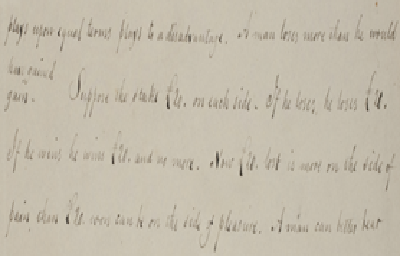 plays upon equal terms plays to a disadvantage. A man loses more than he would
have gained
gain. Suppose the stakes £20. on each side. If he loses, he loses £20.
If he wins he wins £20. and no more. Now £20. lost is more on the side of
pain than £20. won can be on the side of pleasure. A man can better bear